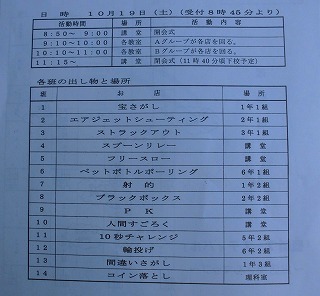 日 時 10月19日(土)(受付8時45分より)
活動時間 場 所 活 動 内 容
8:50~ 9:00 講 堂 開会式
9:10~10:00 各教室 Aグループが各店を回る。
10:10~11:00 各教室 Bグループが各店を回る。
11:15~ 講 堂 閉会式(11時40分頃下校予定)
各班の出し物と場所
班 お 店 場 所
1 宝さがし 1年1組
2 エアジェットシューティング 2年1組
3 ストラックアウト 3年1組
4 スプーンリレー 講 堂
5 フリースロー 講 堂
6 ペットボトルボーリング 6年1組
7 射 的 1年2組
8 ブラックボックス 2年2組
9 P K 講 堂
10 人間すごろく 講 堂
11 10秒チャレンジ 5年2組
12 輪投げ 6年2組
13 間違いさがし 1年3組
14 コイン落とし 理科室